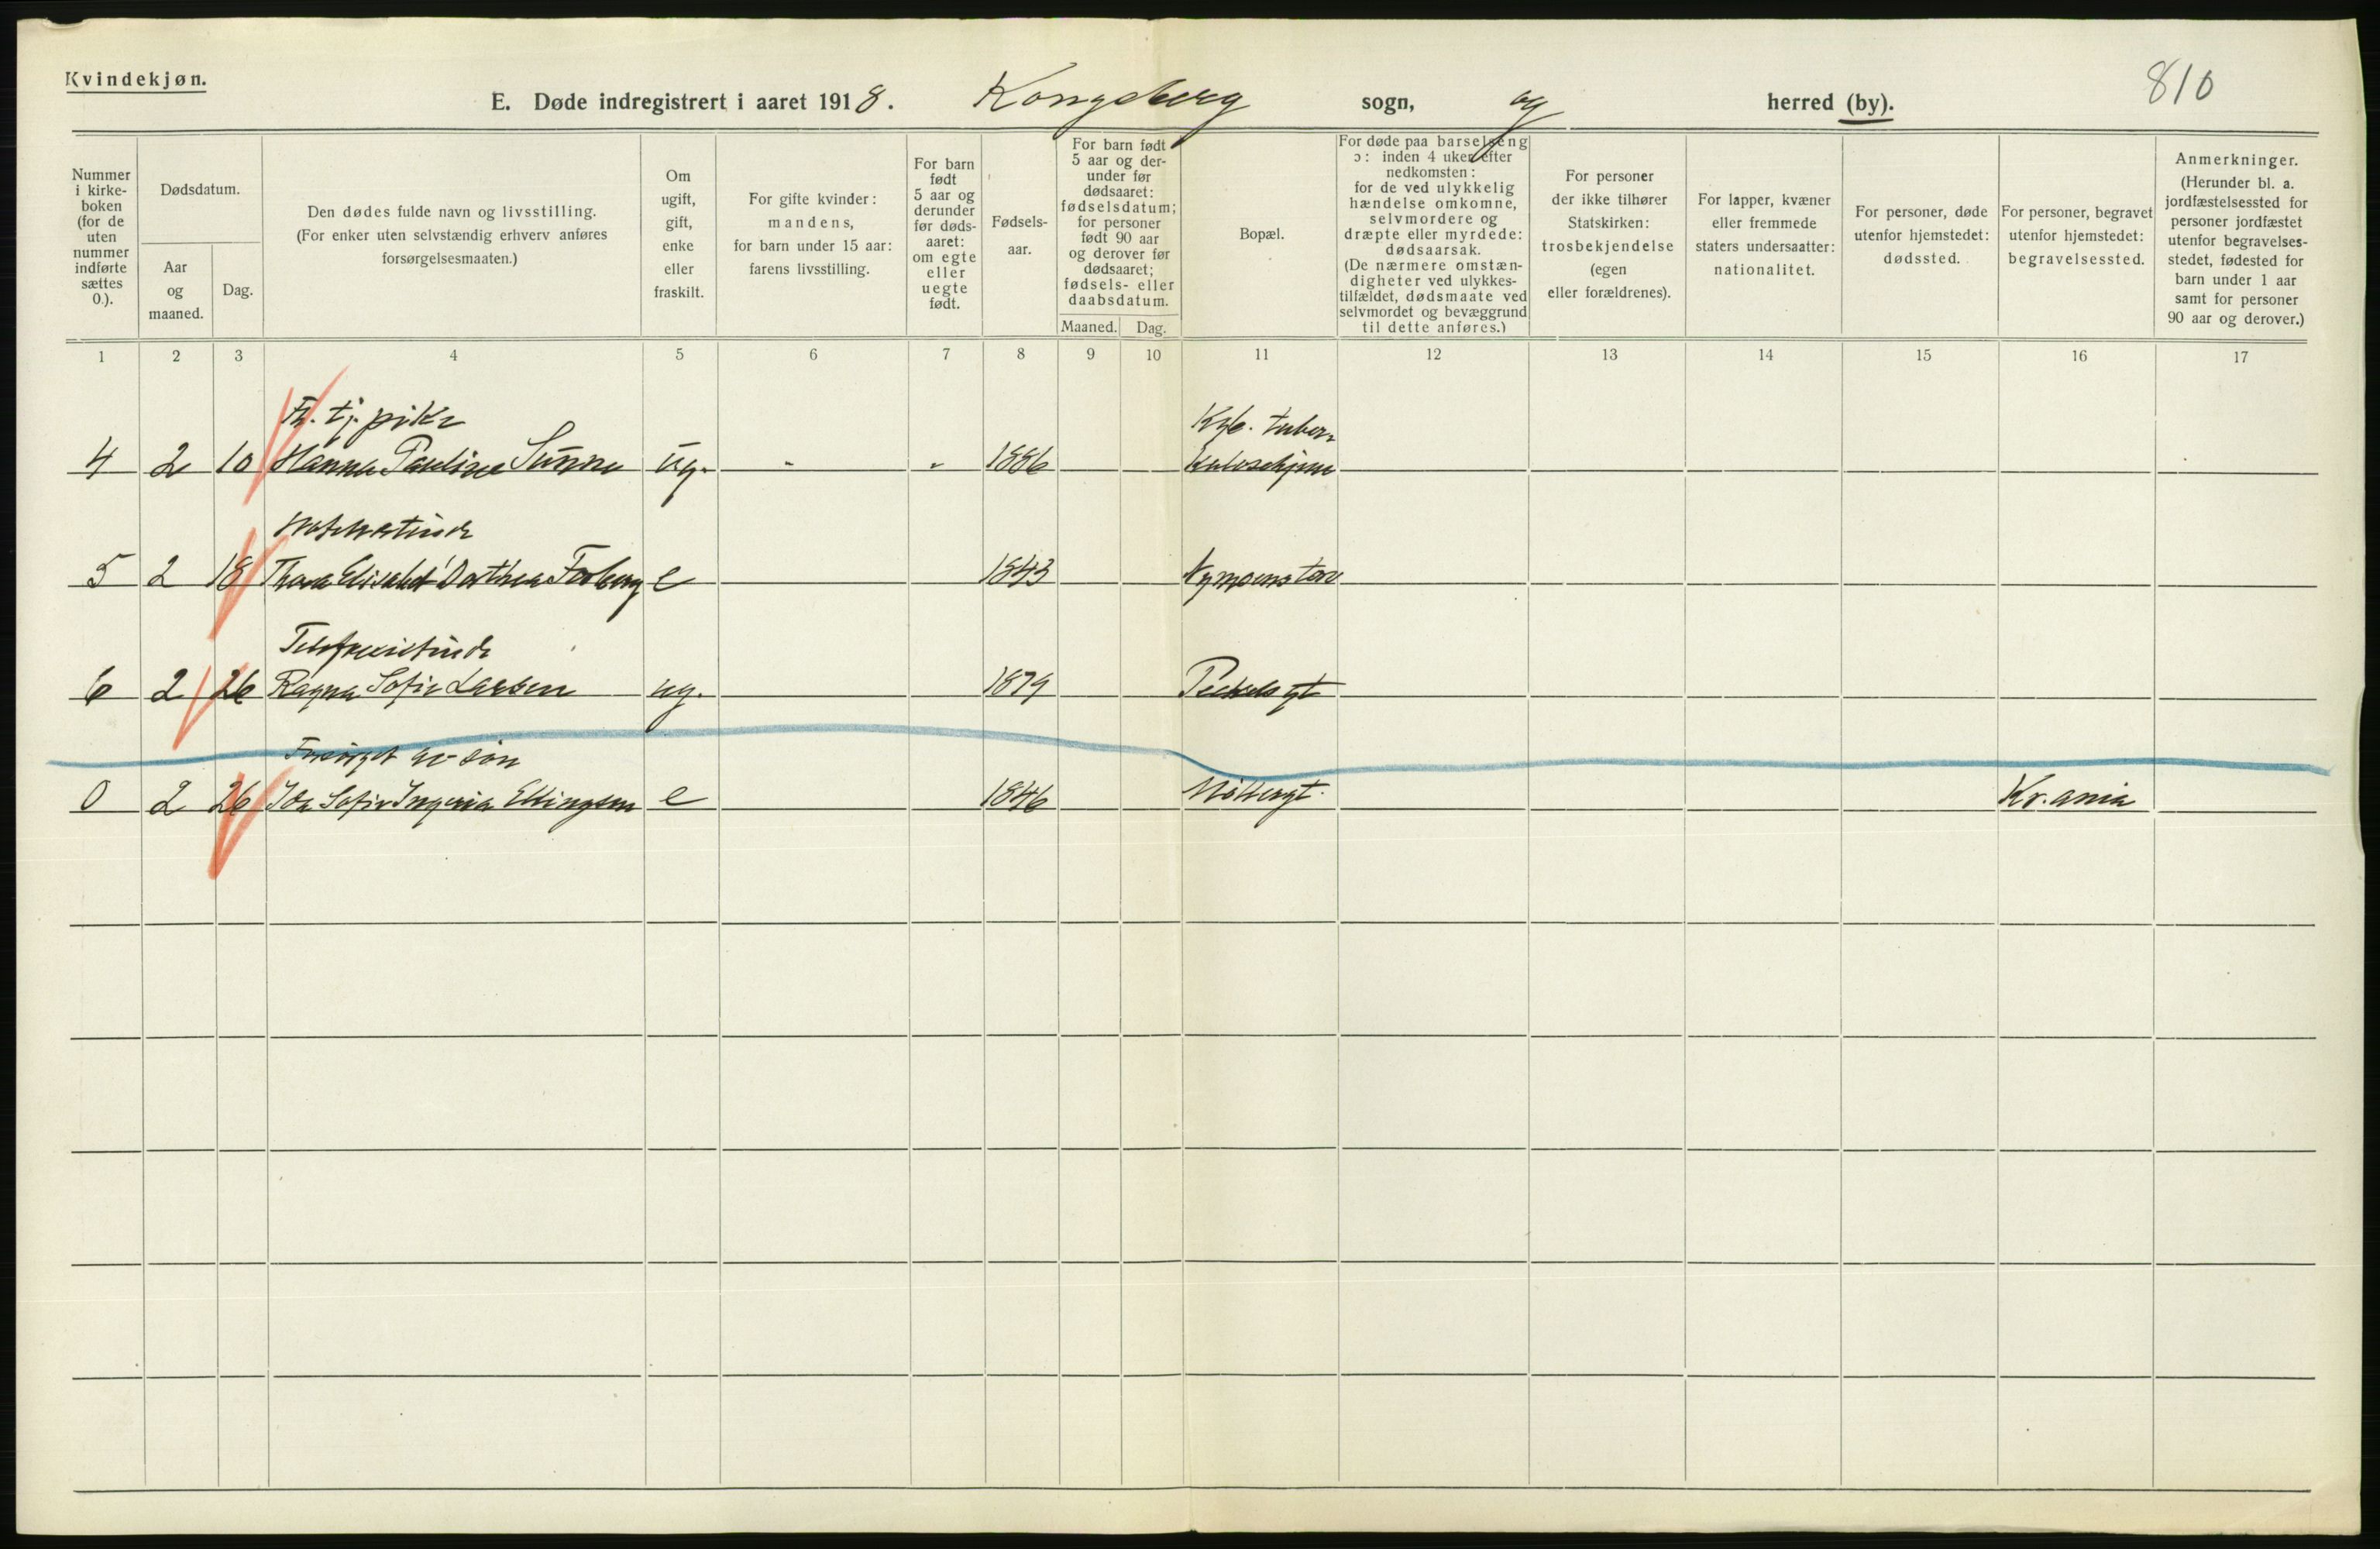 Kvindekjøn.
810
E. Døde indregistrert i aaret 1918. Kongsberg sogn, og herred (by).
Nummer
i kirke-
boken
(for de
uten
nummer
indførte
sættes
0.).
Dødsdatum.
Aar
og
maaned.
Dag.
Den dødes fulde navn og livsstilling.
(For enker uten selvstændig erhverv anføres
forsørgelsesmaaten.)
Om
ugift,
gift,
enke
eller
fraskilt.
For gifte kvinder:
mandens,
for barn under 15 aar:
farens livsstilling.
For barn
født
5 aar og
derunder
før døds-
aaret:
om egte
eller
uegte
født.
Fødsels-
aar.
For barn født
5 aar og der-
under før
dødsaaret:
fødselsdatum;
for personer
født 90 aar
og derover før
dødsaaret;
fødsels- eller
daabsdatum.
Maaned. Dag.
Bopæl.
For døde paa barselseng
ɔ: inden 4 uker efter
nedkomsten:
for de ved ulykkelig
hændelse omkomne,
selvmordere og
dræpte eller myrdede:
dødsaarsak.
(De nærmere omstæn-
digheter ved ulykkes-
tilfældet, dødsmaate ved
selvmordet og bevæggrund
til dette anføres.)
For personer
der ikke tilhører
Statskirken:
trosbekjendelse
(egen
eller forældrenes).
For lapper, kvæner
eller fremmede
staters undersaatter:
nationalitet.
For personer, døde
utenfor hjemstedet:
dødssted.
For personer, begravet
utenfor hjemstedet:
begravelsessted.
Anmerkninger.
(Herunder bl. a.
jordfæstelsessted for
personer jordfæstet
utenfor begravelses-
stedet, fødested for
barn under 1 aar
samt for personer
90 aar og derover.)
1 2 3 4 5 6 7 8 9 10 11 12 13 14 15 16 17
Fh. tj. pike Kgb. tuber-
4 2 10 Hanna Pauline ug. - - 1886 kuloschjem
5 2 18 Thora Elisabet Dorthea Foberg e 1843
Telefonistinde
6 2 26 Ragna Sofie Larsen ug. 1879 Peckels gt
Forsørget av søn
0 2 26 Ida Sofie Ingeria Ellingsen e 1846 Møllergt. Kr.ania